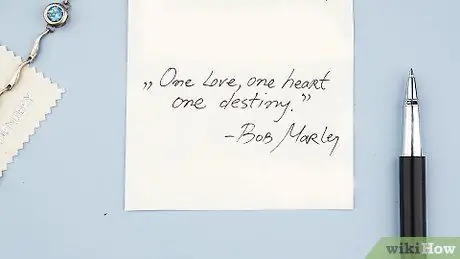 „One Love, one heart
one destiny.”
-Bob Marley
wikiHow